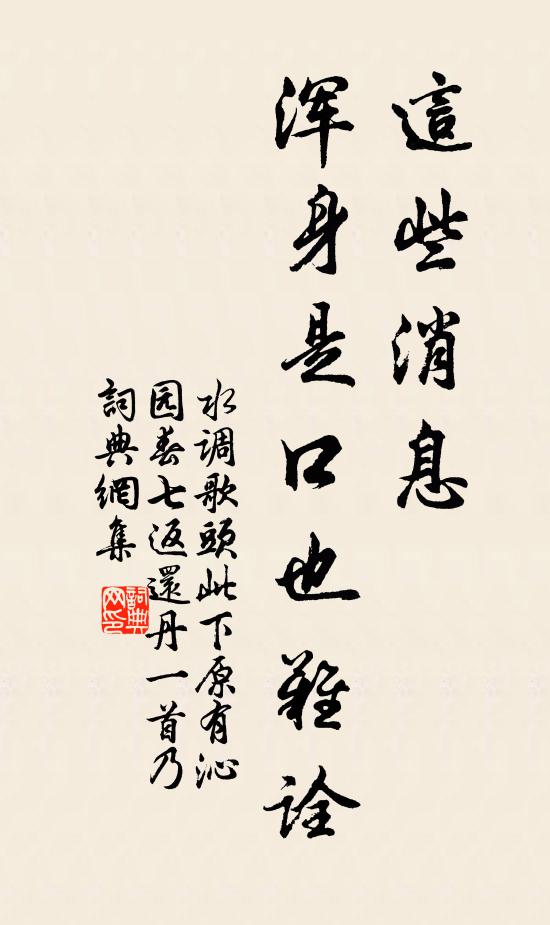 這些消息
渾身是口也難詮
水调歌頭此下原有沁
园春七返還丹一首乃
詞典網集
詞典网印